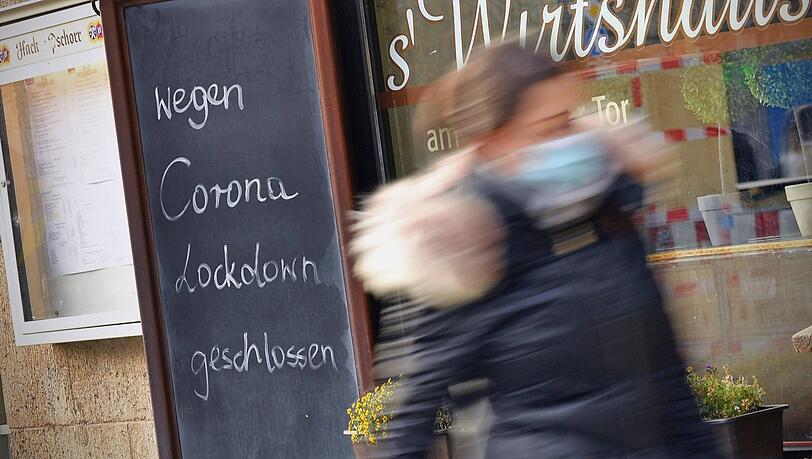 Hacker-Pschorr
wegen
Corona
Lockdown
geschlossen
s' Wirtshaus
am Tor